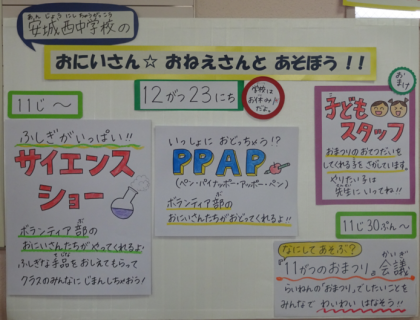 安城西中学校の
あんじょうにしちゅうがっこう
おにいさん☆おねえさんと あそぼう!!
12がつ23にち
学校は
お休み
だよ。
おまけ
11じ～
ふしぎがいっぱい!!
サイエンス
ショー
ボランティア部の
おにいさんたちが やってくれるよ!
ふしぎな手品をおしえてもらって
クラスのみんなに じまんしちゃおう!
いっしょに おどっちゃう!?
PPAP
(ペン・パイナッポー・アッポー・ペン)
ボランティア部の
おにいさんたちがおどってくれるよ!
子ども
スタッフ
おまつりのおてつだいを
してくれる子をさがしています。
やりたい子は
先生にいってね!!
11じ30ぷん～
なにしてあそぶ?
"11がつのおまつり"会議
かいぎ
らいねんの「おまつり」でしたいことを
みんなで わいわいはなそう!!